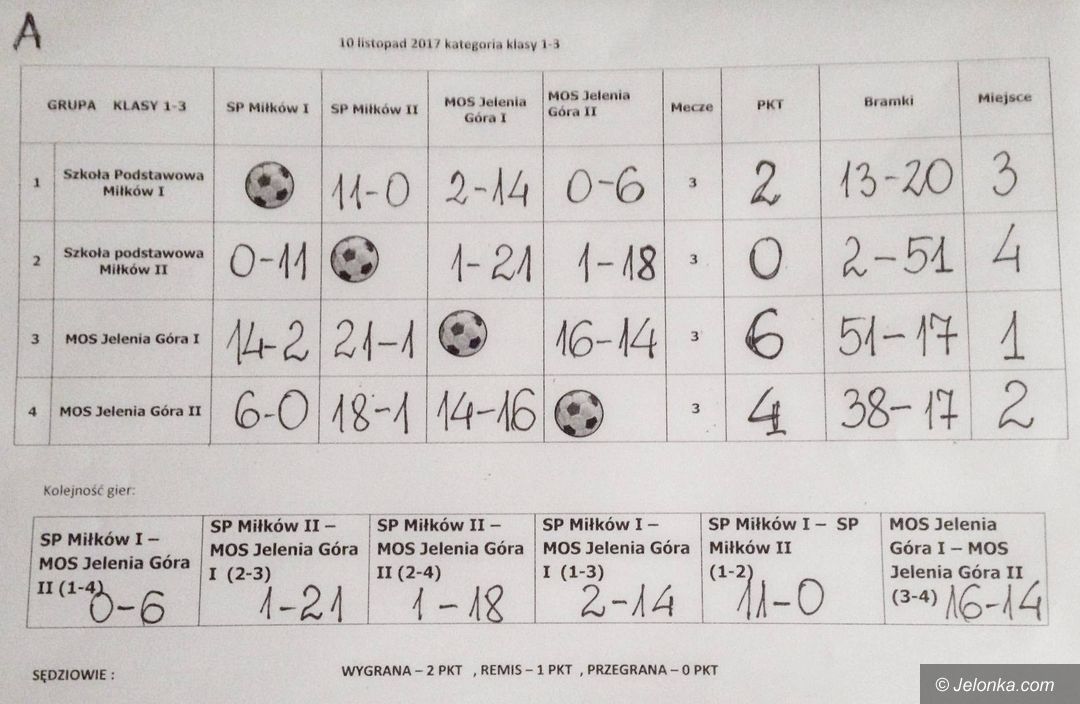 A
10 listopad 2017 kategoria klasy 1-3
GRUPA KLASY 1-3 SP Miłków I SP Miłków II MOS Jelenia Góra I MOS Jelenia Góra II Mecze PKT Bramki Miejsce
1 Szkoła Podstawowa Miłków I 11-0 2-14 0-6 3 2 13-20 3
2 Szkoła podstawowa Miłków II 0-11 1-21 1-18 3 0 2-51 4
3 MOS Jelenia Góra I 14-2 21-1 16-14 3 6 51-17 1
4 MOS Jelenia Góra II 6-0 18-1 14-16 3 4 38-17 2
Kolejność gier:
SP Miłków I –
MOS Jelenia Góra
II (1-4)
0-6
SP Miłków II –
MOS Jelenia Góra
I (2-3)
1-21
SP Miłków II –
MOS Jelenia Góra
II (2-4)
1-18
SP Miłków I –
MOS Jelenia Góra
I (1-3)
2-14
SP Miłków I – SP
Miłków II
(1-2)
11-0
MOS Jelenia
Góra I – MOS
Jelenia Góra II
(3-4) 16-14
SĘDZIOWIE :
WYGRANA – 2 PKT , REMIS – 1 PKT , PRZEGRANA – 0 PKT
© Jelonka.com